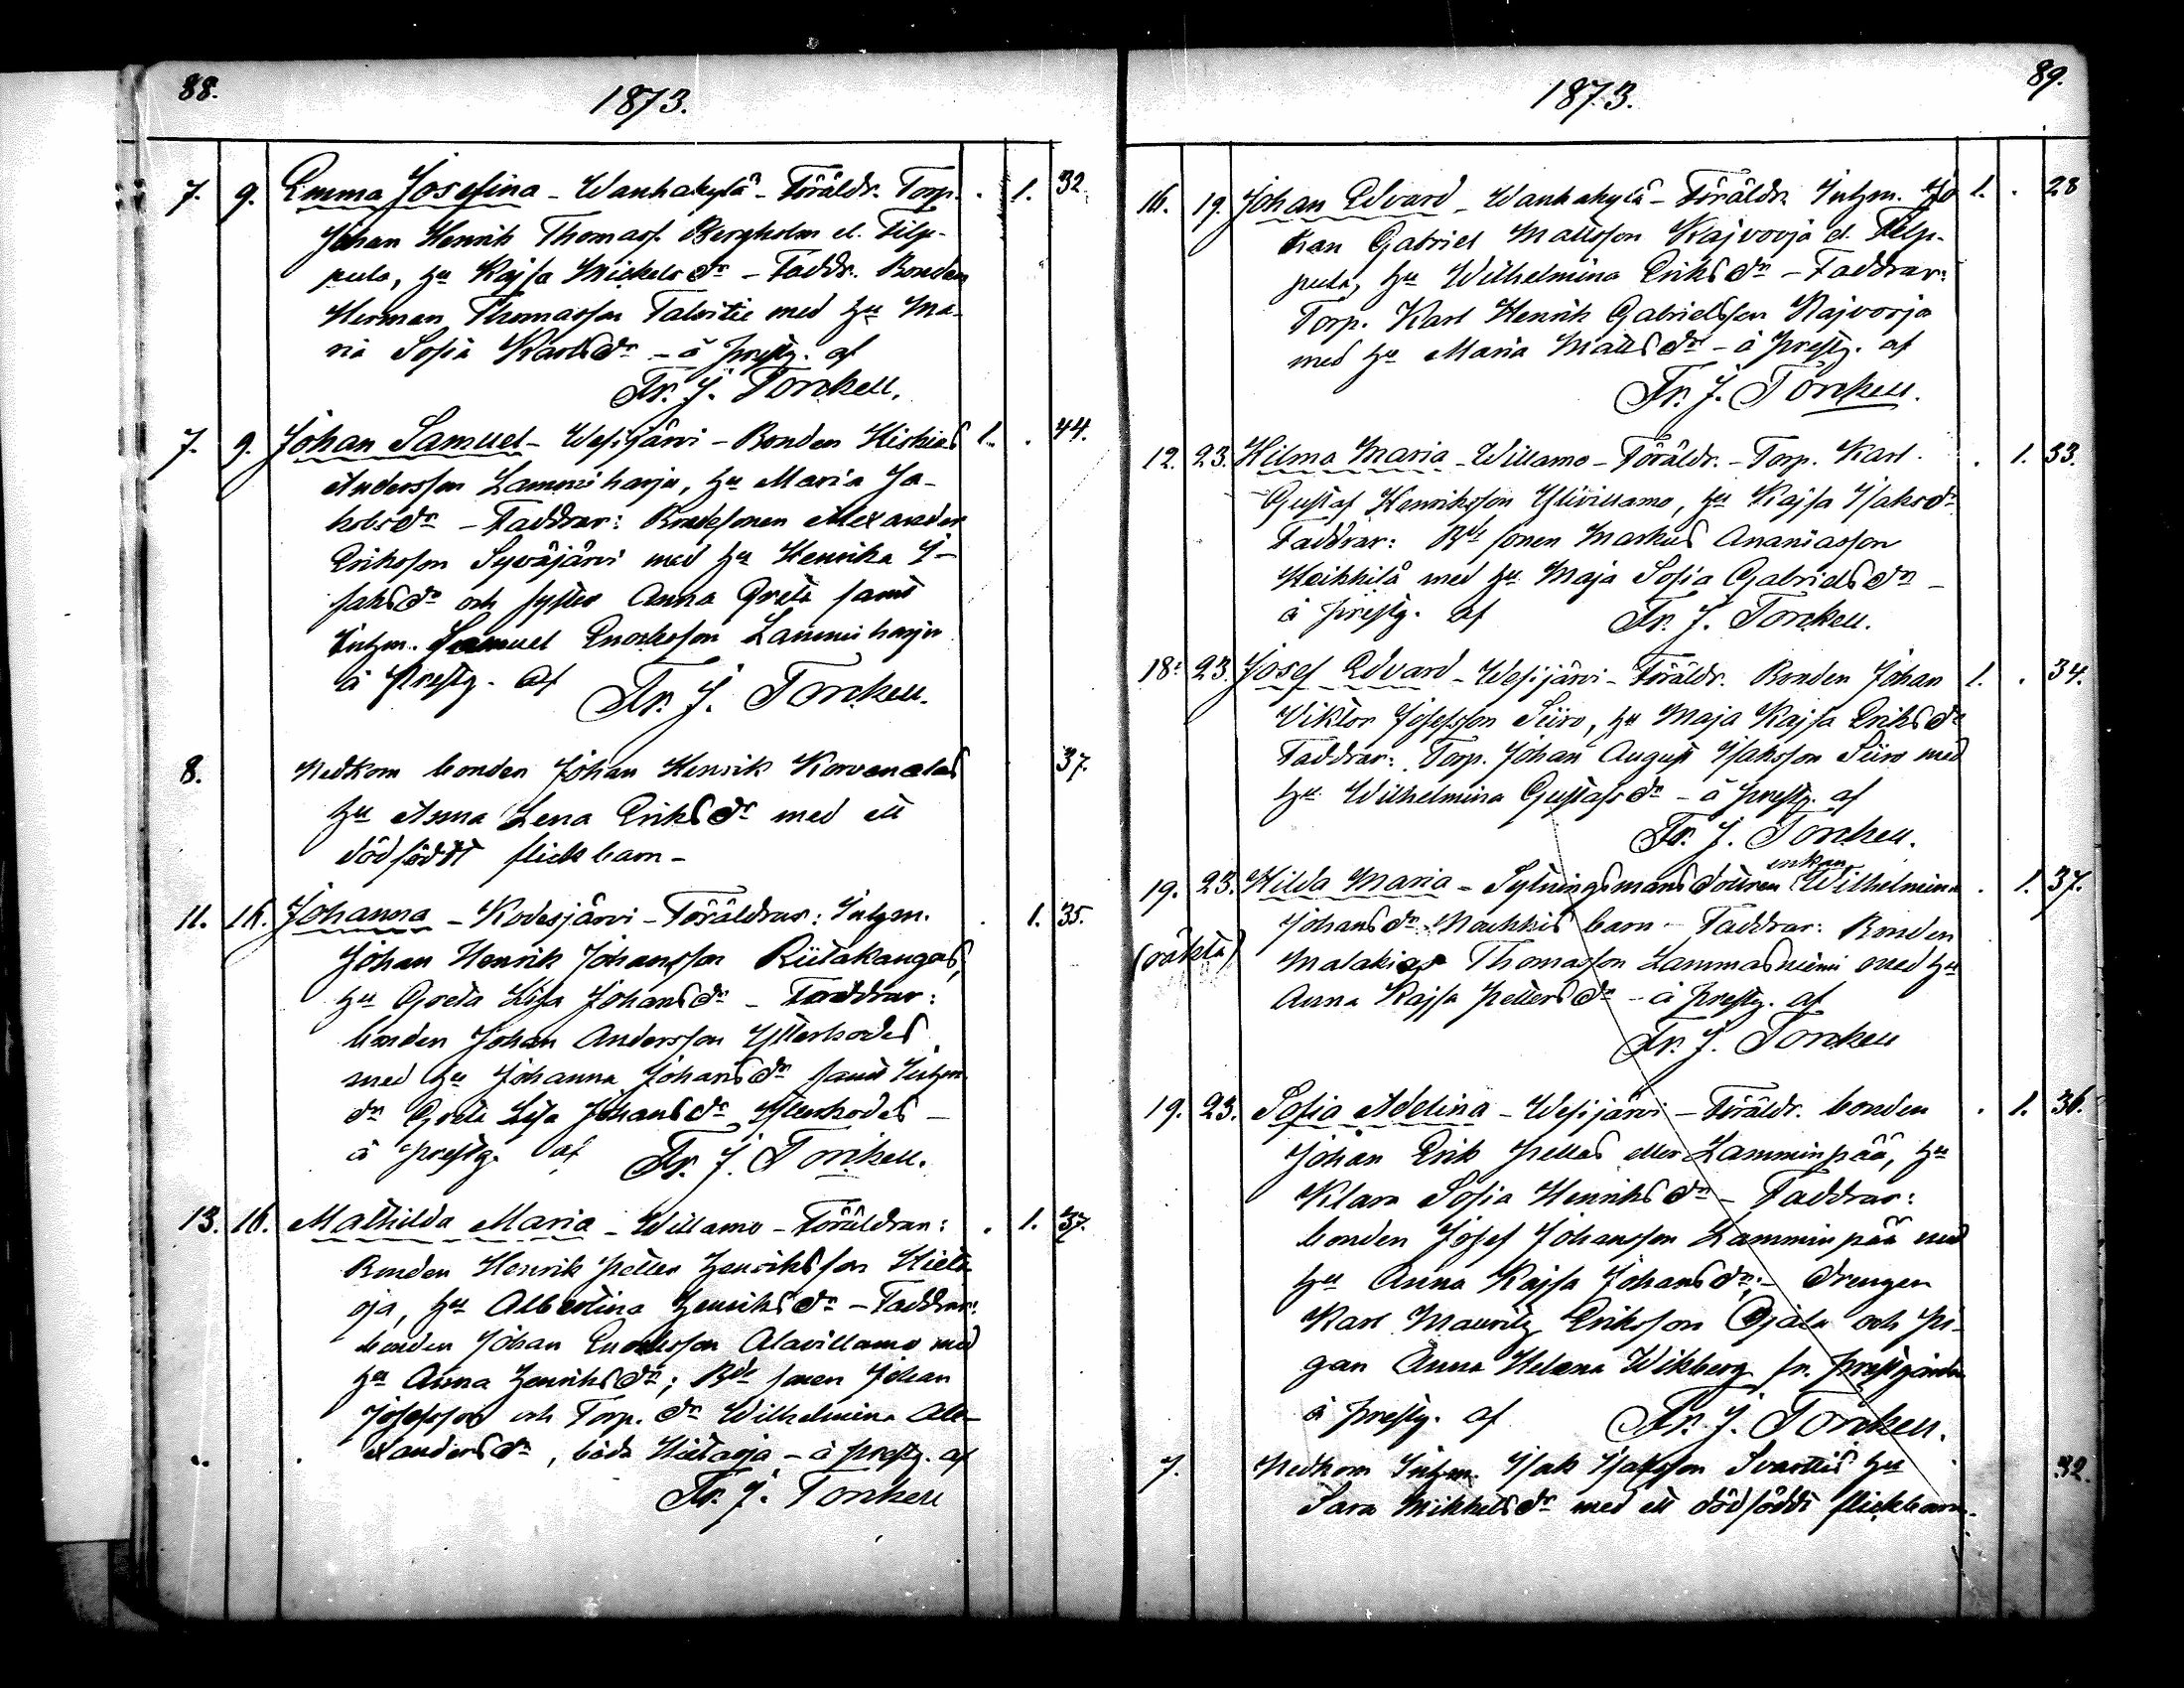 88.
1873.
7. 9. Emma Josefina - Wanhakylä - Föräldr. Torp. . 1. 32.
Johan Henrik Thomass. Bergholm el. Filp-
pula, hu Kajsa Mickelsdr - Faddr. Bonden
Herman Thomasson Talvitie med hu Ma-
ria Sofia Karlsdr - å prestg. af
Fr. J. Torckell.
7. 9. Johan Samuel - Wesijärvi - Bonden Hiskias 1. . 44.
Andersson Lamminharju, hu Maria Ja-
kobsdr - Faddrar: Bondesonen Alexander
Eriksson Syväjärvi med hu Henrika I-
saksdr och syster Anna Greta samt
Inhm. Samuel Enochsson Lamminharju
å Prestg. af
Fr. J. Torckell.
8. Nedkom bonden Johan Henrik Korvenelas 37.
hu Anna Lena Eriksdr med ett
dödfödt flickbarn -
11. 16. Johanna - Kodesjärvi - Föräldrar: Inhm. . 1. 35.
Johan Henrik Johansson Riitakangas,
hu Greta Lisa Johansdr - Faddrar:
bonden Johan Andersson Ytterkodes
med hu Johanna Johansdr samt Inhm
dr Greta Lisa Johansdr Ytterkodes -
å prestg. af Fr. J. Torckell.
13. 16. Mathilda Maria - Willamo - Föräldrar: . 1. 37.
Bonden Henrik Petter Henriksson Hieta
oja, hu Albertina Henriksdr - Faddrar:
bonden Johan Enochsson Alavillamo med
hu Anna Henriksdr; Bde sonen Johan
Josefsson och Torp. dr Wilhelmina Ale-
xandersdr, båda Hietaoja - å prestg. af
Fr. J. Torckell
89.
1873.
16. 19. Johan Edvard - Wanhakylä - Föräldr. Inhm. Jo 1. . 28
han Gabriel Mattsson Kajvooja el. Filp-
pula, hu Wilhelmina Eriksdr - Faddrar:
Torp. Karl Henrik Gabrielsson Kajvooja
med hu Maria Mattsdr - å prestg. af
Fr. J. Torckell.
12. 23. Hilma Maria - Willamo - Föräldr. - Torp. Karl . 1. 33.
Gustaf Henriksson Ylivillamo, hu Kajsa Isaksdr
Faddrar: Bde sonen Markus Ananiasson
Heikkilä med hu Maja Sofia Gabrielsdr -
å prestg. af Fr. J. Torckell.
18. 23. Josef Edvard - Wesijärvi - Föräldr. Bonden Johan 1. . 34.
Viktor Josefsson Siiro, hu Maja Kajsa Eriksdr
Faddrar: Torp. Johan August Isaksson Siiro med
hu Wilhelmina Gustafsdr - å prestg. af
Fr. J. Torckell.
enkan
19. 23. Hilda Maria - Sytningsmansdottren Wilhelmina . 1. 37.
Johansdr barn - Faddrar: Bonden
(oäkta) Malakias Thomasson Lammasniemi med hu
Anna Kajsa Pettersdr - å prestg. af
Fr. J. Torckell
19. 23. Sofia Adelina - Wesijärvi - Föräldr. bonden . 1. 36.
Johan Erik Pellas eller Lamminpää, hu
Klara Sofia Henriksdr - Faddrar:
bonden Josef Johansson Lamminpää med
hu Anna Kajsa Johansdr; - drengen
Karl Mauritz Eriksson Ojala och pi-
gan Anna Helena Wikberg fr. prestgården
å prestg. af Fr. J. Torckell.
7. Nedkom Inhm. Isak Isaksson Svarttis hu 32.
Sara Mikkelsdr med ett dödfödt flickbarn.